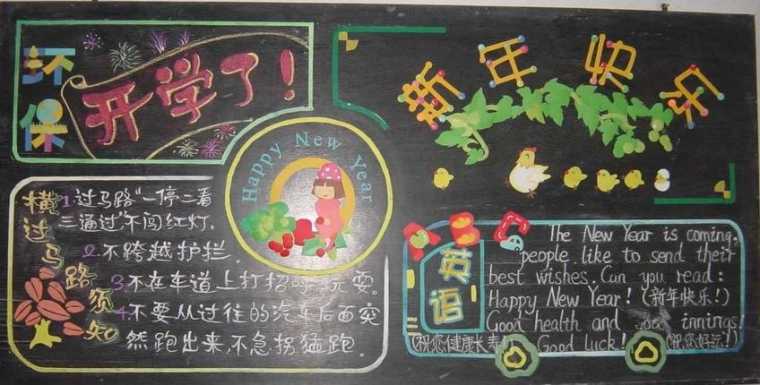 环保
开学了!
新年快乐
Happy New Year
横过马路须知
1.过马路"一停二看
三通过"不闯红灯.
2.不跨越护拦.
3不在车道上打招呼玩耍。
4不要从过往的汽车后面突
然跑出来,不急拐猛跑.
英语
The New Year is coming,
people like to send their
best wishes. Can you read:
Happy New Year! (新年快乐!)
Good health and good innings!
(祝您健康长寿!) Good luck! (祝您好运!)